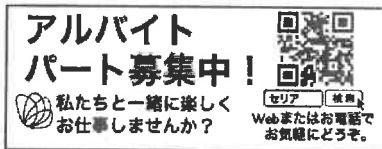 アルバイト
パート募集中！
私たちと一緒に楽しく
お仕事しませんか？
セリア 検索
Webまたはお電話で
お気軽にどうぞ。